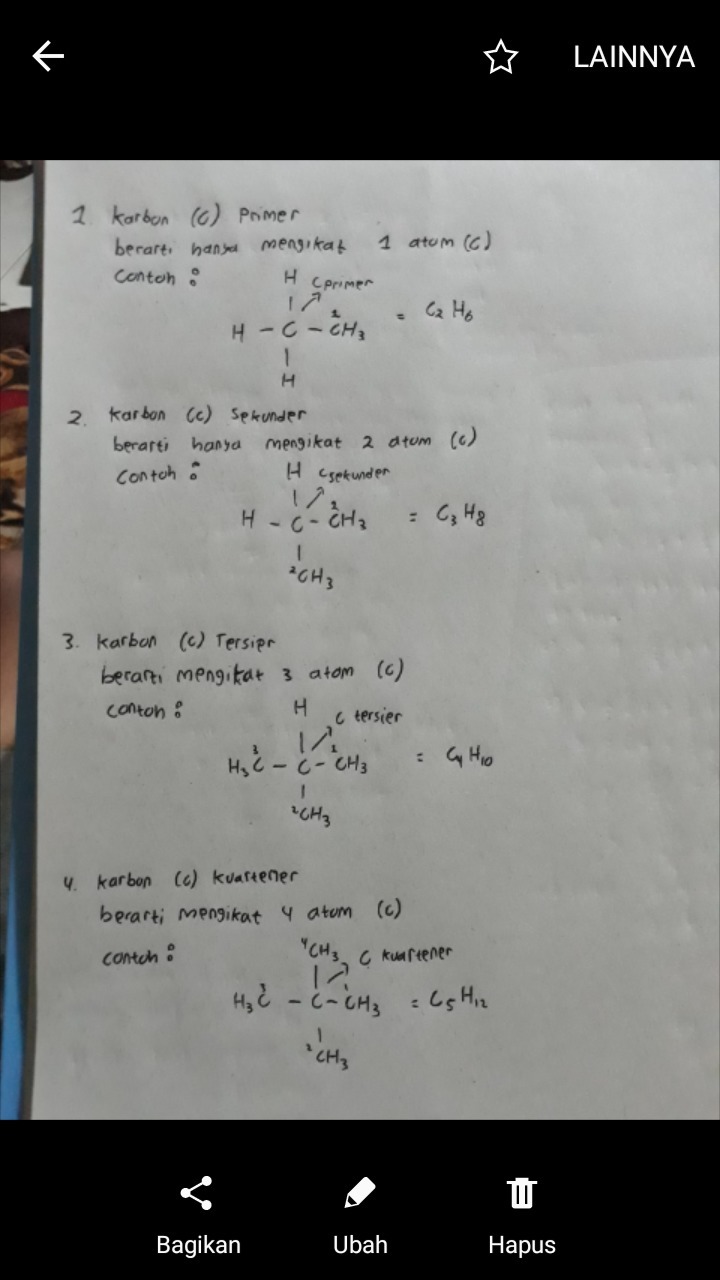 LAINNYA
1. Karbon (C) Primer
berarti hanya mengikat 1 atom (C)
Contoh :
H C primer
H - C - ¹CH₃ = C₂H₆
H
2. Karbon (C) Sekunder
berarti hanya mengikat 2 atom (C)
Contoh :
H C sekunder
H - C - ¹CH₃ = C₃H₈
²CH₃
3. Karbon (C) Tersier
berarti mengikat 3 atom (C)
contoh :
H C tersier
H₃³C - C - ¹CH₃ = C₄H₁₀
²CH₃
4. Karbon (C) kuartener
berarti mengikat 4 atom (C)
contoh :
⁴CH₃ C kuartener
H₃³C - C - ¹CH₃ = C₅H₁₂
²CH₃
Bagikan Ubah Hapus